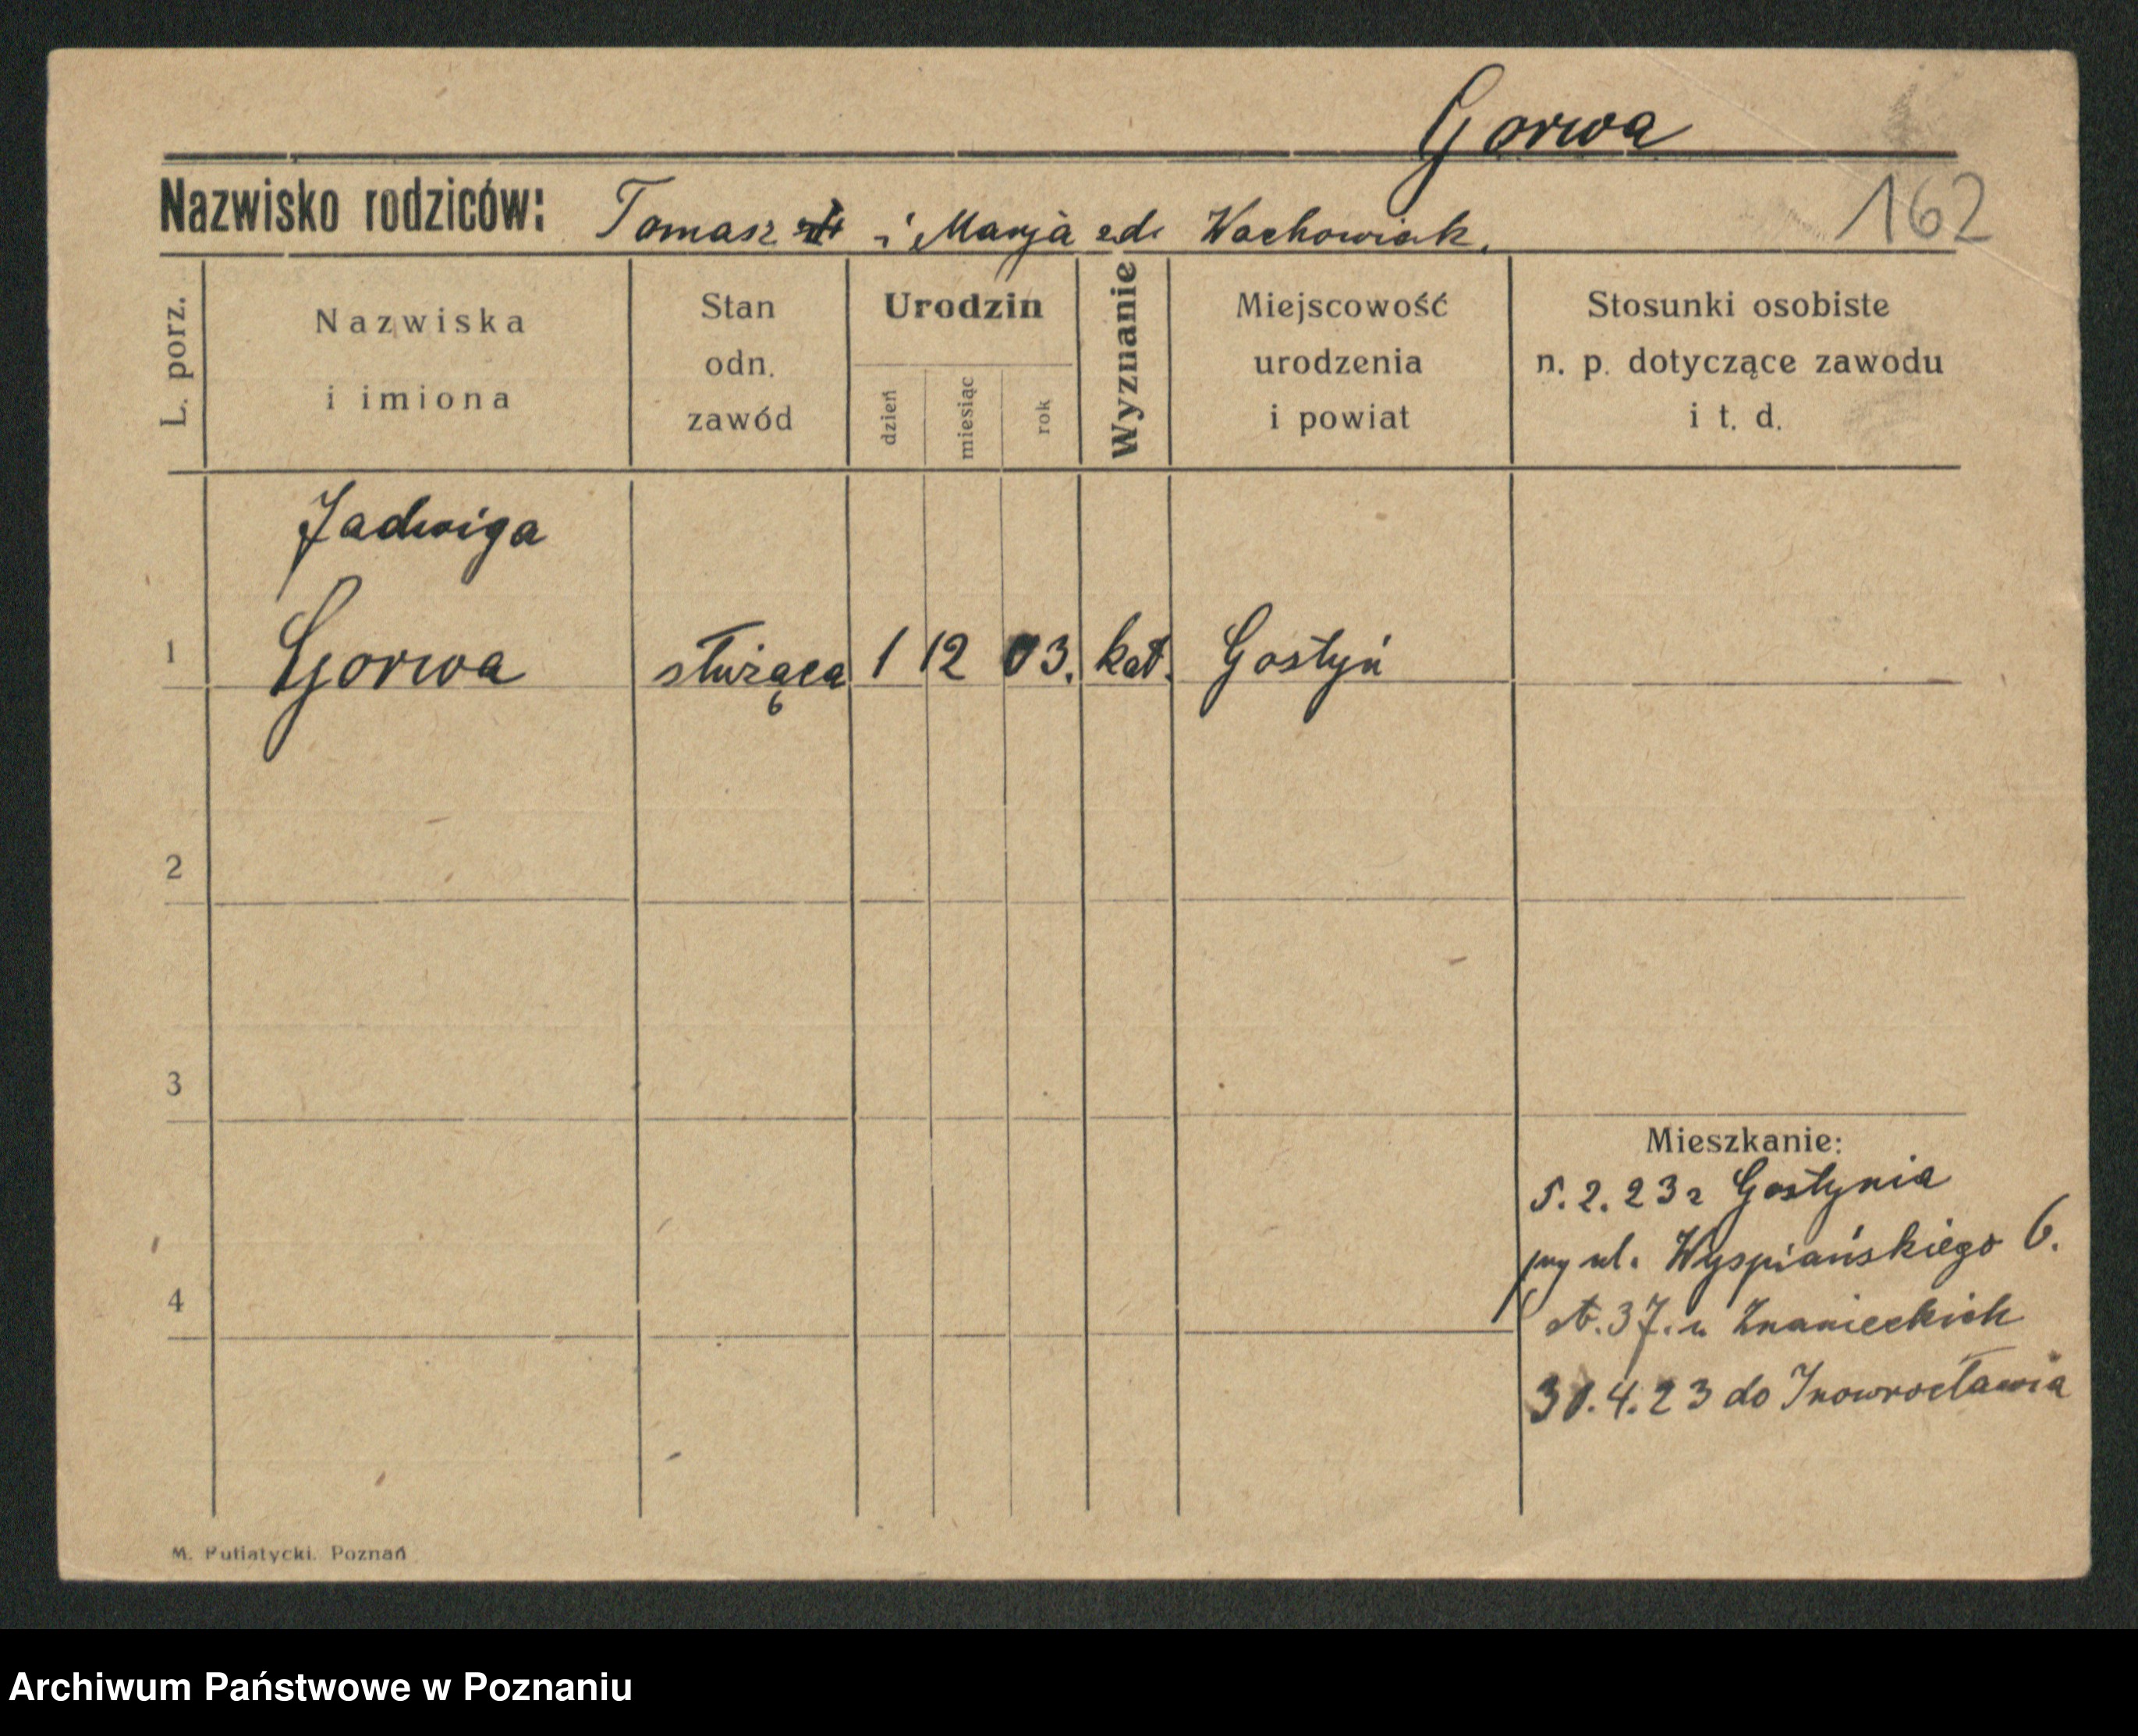 Gorwa
162
Nazwisko rodziców: Tomasz i Marja zd. Wachowiak.
L. porz.
Nazwiska
i imiona
Stan
odn.
zawód
Urodzin
dzień
miesiąc
rok
Wyznanie
Miejscowość
urodzenia
i powiat
Stosunki osobiste
n. p. dotyczące zawodu
i t. d.
Jadwiga
1 Gorwa służąca 1 12 03. kat. Gostyń
2
3
4
Mieszkanie:
5.2.23 z Gostynia
przy ul. Wyspiańskiego 6.
37. u Znanieckich
30.4.23 do Inowrocławia
M. Putiatycki. Poznań
Archiwum Państwowe w Poznaniu